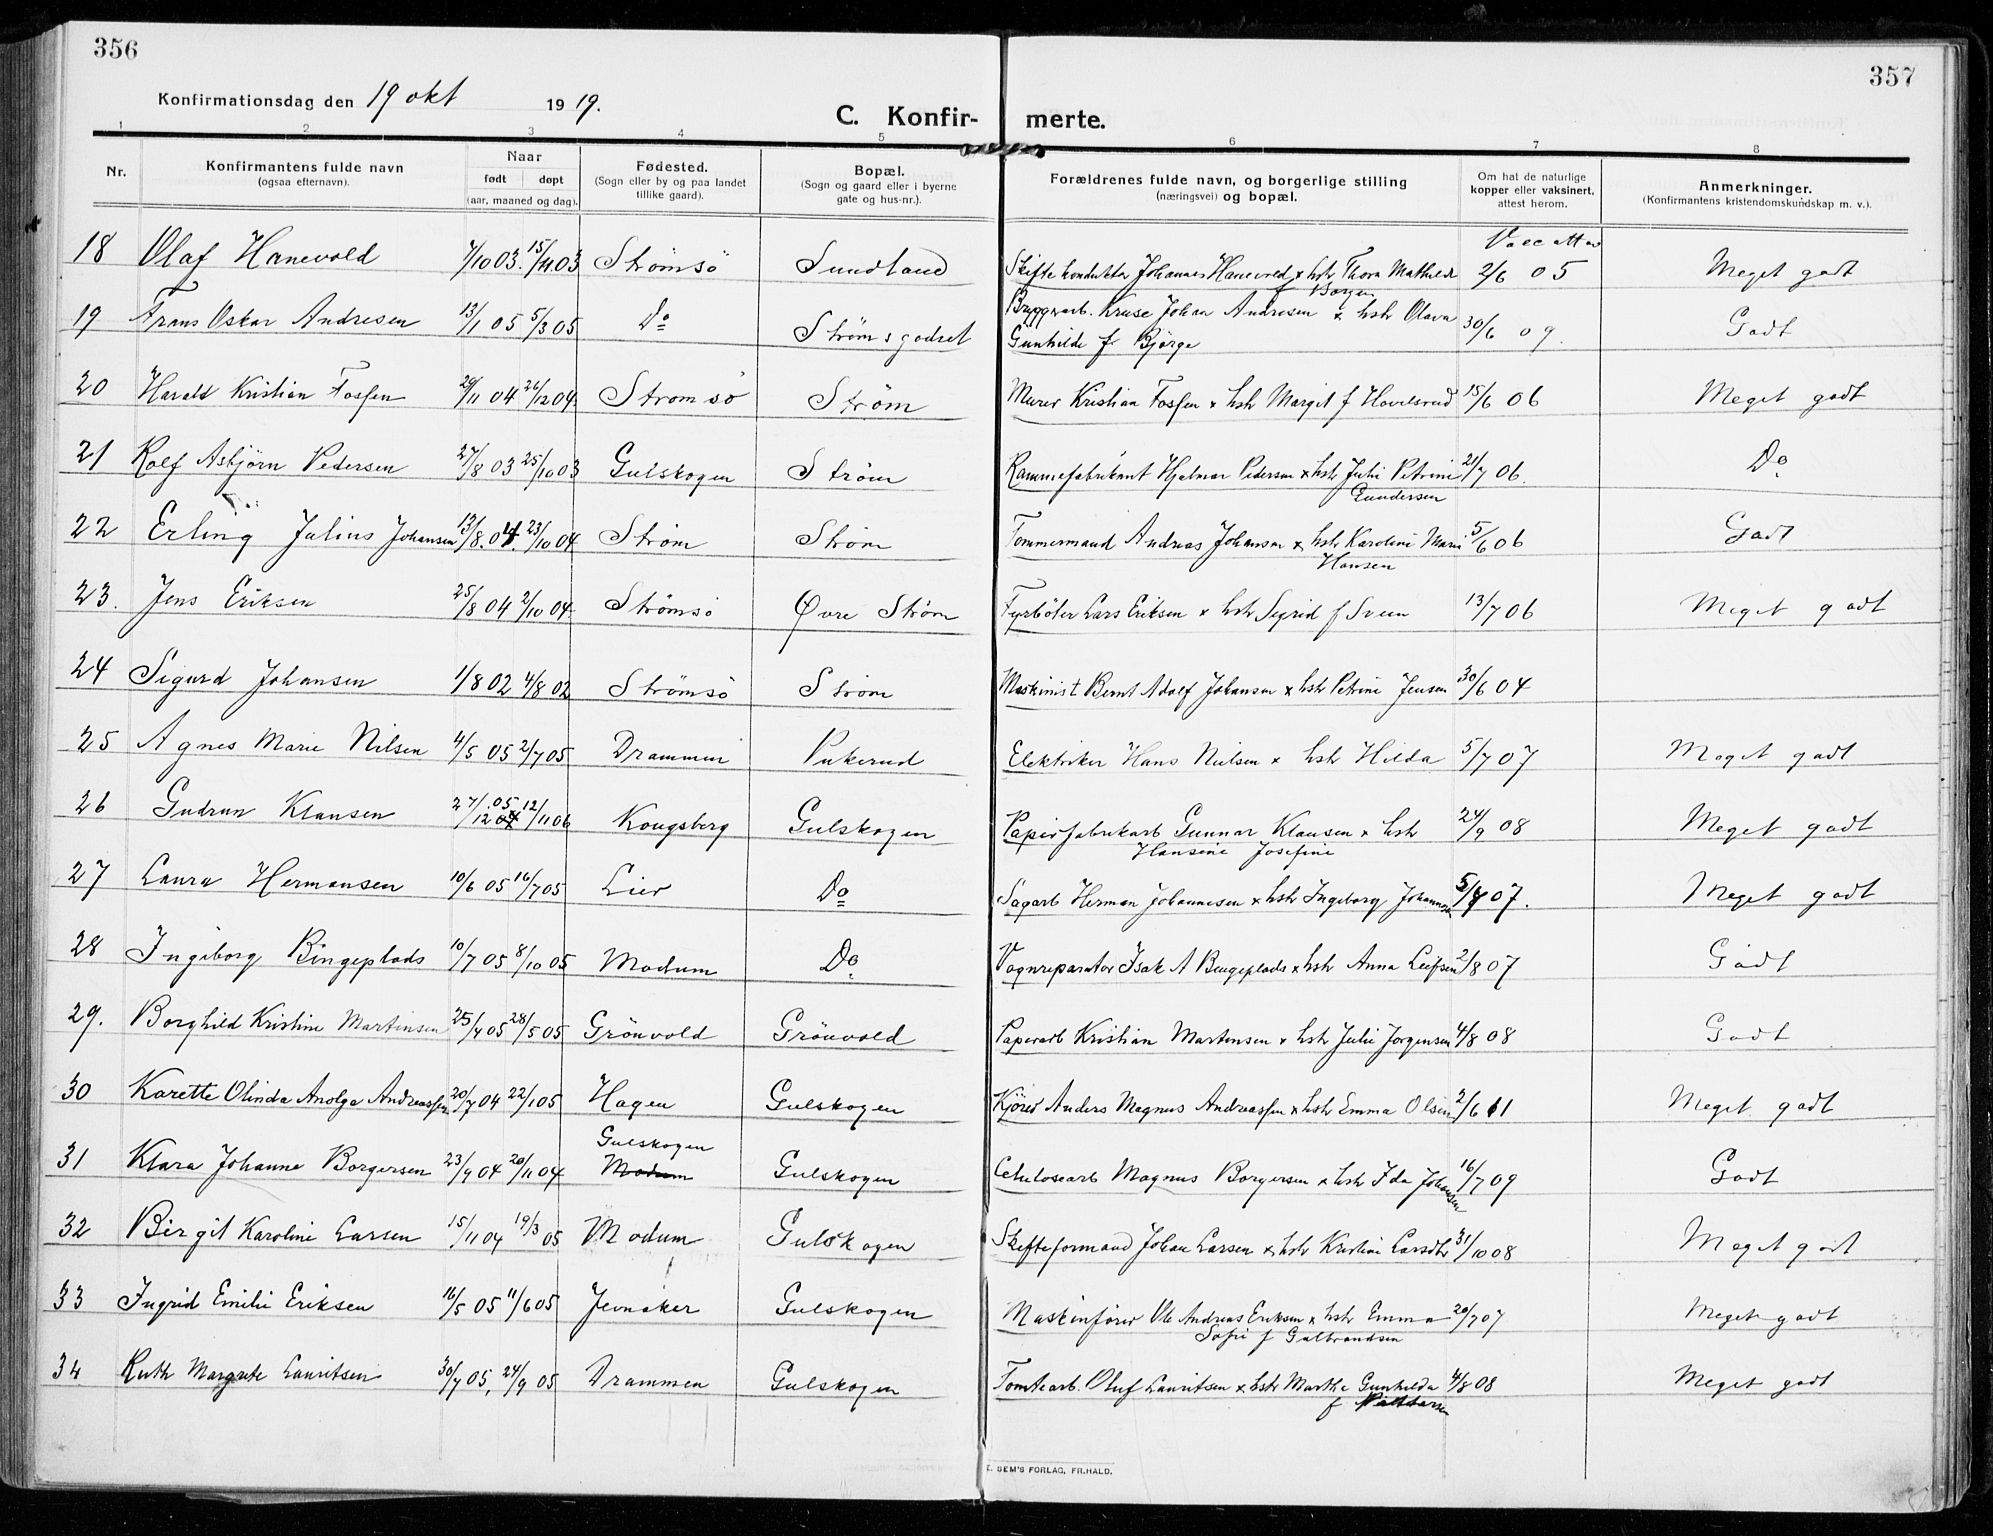 356
357
Konfirmationsdag den 19 okt 1919.
C. Konfir- merte.
1 2 3 4 5 6 7 8
Nr.
Konfirmantens fulde navn (ogsaa efternavn).
Naar født døpt (aar, maaned og dag).
Fødested. (Sogn eller by og paa landet tillike gaard).
Bopæl. (Sogn og gaard eller i byerne gate og hus-nr.).
Forældrenes fulde navn, og borgerlige stilling (næringsvei) og bopæl.
Om hat de naturlige kopper eller vaksinert, attest herom.
Anmerkninger. (Konfirmantens kristendomskundskap m. v.).
Vacc att av
18 Olaf Hanevold 7/10 03. 15/11 03 Strömsö Sundland Skiftekonduktör Johannes Hanevold x hstr Thora Mathilde f Borgen 2/6 05 Meget godt
19 Frans Oskar Andresen 13/1 05 5/3 05 Do Strömsgodset Bryggearb. Kruse Johan Andresen x hstr Olava Gunhilde f Bjørge 30/6 09. Godt
20 Harald Kristian Fosfen 29/11 04 26/12 04. Strömsö Strøm Murer Kristian Fosfen x hstr Margit f Hovelsrud 15/6 06 Meget godt
21 Rolf Asbjörn Pedersen 27/8 03 25/10 03 Gulskogen Ström Rammefabrikant Hjalmar Pedersen x hstr Julie Petrine Gundersen 21/7 06. Do
22 Erling Julius Johansen 13/8. 04. 23/10 04 Strøm Strøm Tømmermand Andreas Johansen x hstr Karoline Marie Hansen 5/6 06 Godt
23. Jens Eriksen 25/8 04 2/10 04. Strömsö Øvre Strøm Fyrböter Lars Eriksen x hstr Sigrid f Sveen 13/7 06 Meget godt
24 Sigurd Johansen 1/8 02 4/8 02 Strömsö Ström Maskinist Bernt Adolf Johansen x hstr Petrine Jensen 30/6 04
25 Agnes Marie Nilsen 4/5 05 2/7 05 Drammen Pukerud Elektriker Hans Nielsen x hstr Hilda 5/7 07 Meget godt
26 Gudrun Klausen 27/12 05 12/11 06 Kongsberg Gulskogen Papirfabrikarb Gunnar Klausen x hstr Hansine Josefine 24/9 08 Meget godt
27 Laura Hermansen 10/6 05 16/7 05 Lier Do Sagarb Herman Johannesen x hstr Ingeborg Johannesen 5/7 07. Meget godt
28 Ingeborg Bingeplads 10/7 05 8/10 05 Modum Do Vognreparatör Isak A Bingeplads x hstr Anna Leifsen 2/8 07 Godt
29. Borghild Kristine Martinsen 25/4 05 28/5 05 Grönvold Grönvold Papirarb Kristian Martensen x hstr Julie Jorgensen 4/8 08 Godt
30 Karette Olinda Anolga Andreassen 20/7 04 22/1 05 Hagen Gulskogen Kjörer Anders Magnus Andreassen x hstr Emma Olsen 2/6 11 Meget godt
31 Klara Johanne Borgersen 23/9 04 20/11 04 Gulskogen Modum Gulskogen Celulosearb Magnus Borgersen x hstr Ida Johansen 16/7 09 Godt
32 Birgit Karoline Larsen 15/11 04 19/3 05 Modum Gulskogen Skifteformand Johan Larsen x hstr Kristine Larsdtr 31/10 08 Meget godt
33 Ingrid Emilie Eriksen 16/5 05 11/6 05 Jevnaker Gulskogen Maskinfører Ole Andreas Eriksen x hstr Emma Sofie f Gulbrandsen 20/7 07 Meget godt
34 Ruth Margrete Lauritsen 30/7 05, 24/9 05 Drammen Gulskogen Tomtearb. Oluf Lauritsen x hstr Marthe Gunhilda f 4/8 08 Meget godt
E. SEM'S FORLAG, FR.HALD.